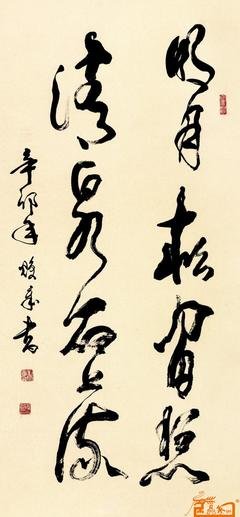 明月松間照
清泉石上流
辛卯年 書